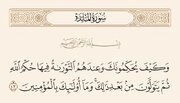 سورة المائدة
بسم الله الرحمن الرحيم
وَكَيْفَ يُحَكِّمُونَكَ وَعِندَهُمُ ٱلتَّوْرَىٰةُ فِيهَا حُكْمُ ٱللَّهِ
ثُمَّ يَتَوَلَّوْنَ مِنۢ بَعْدِ ذَٰلِكَ وَمَآ أُو۟لَٰٓئِكَ بِٱلْمُؤْمِنِينَ